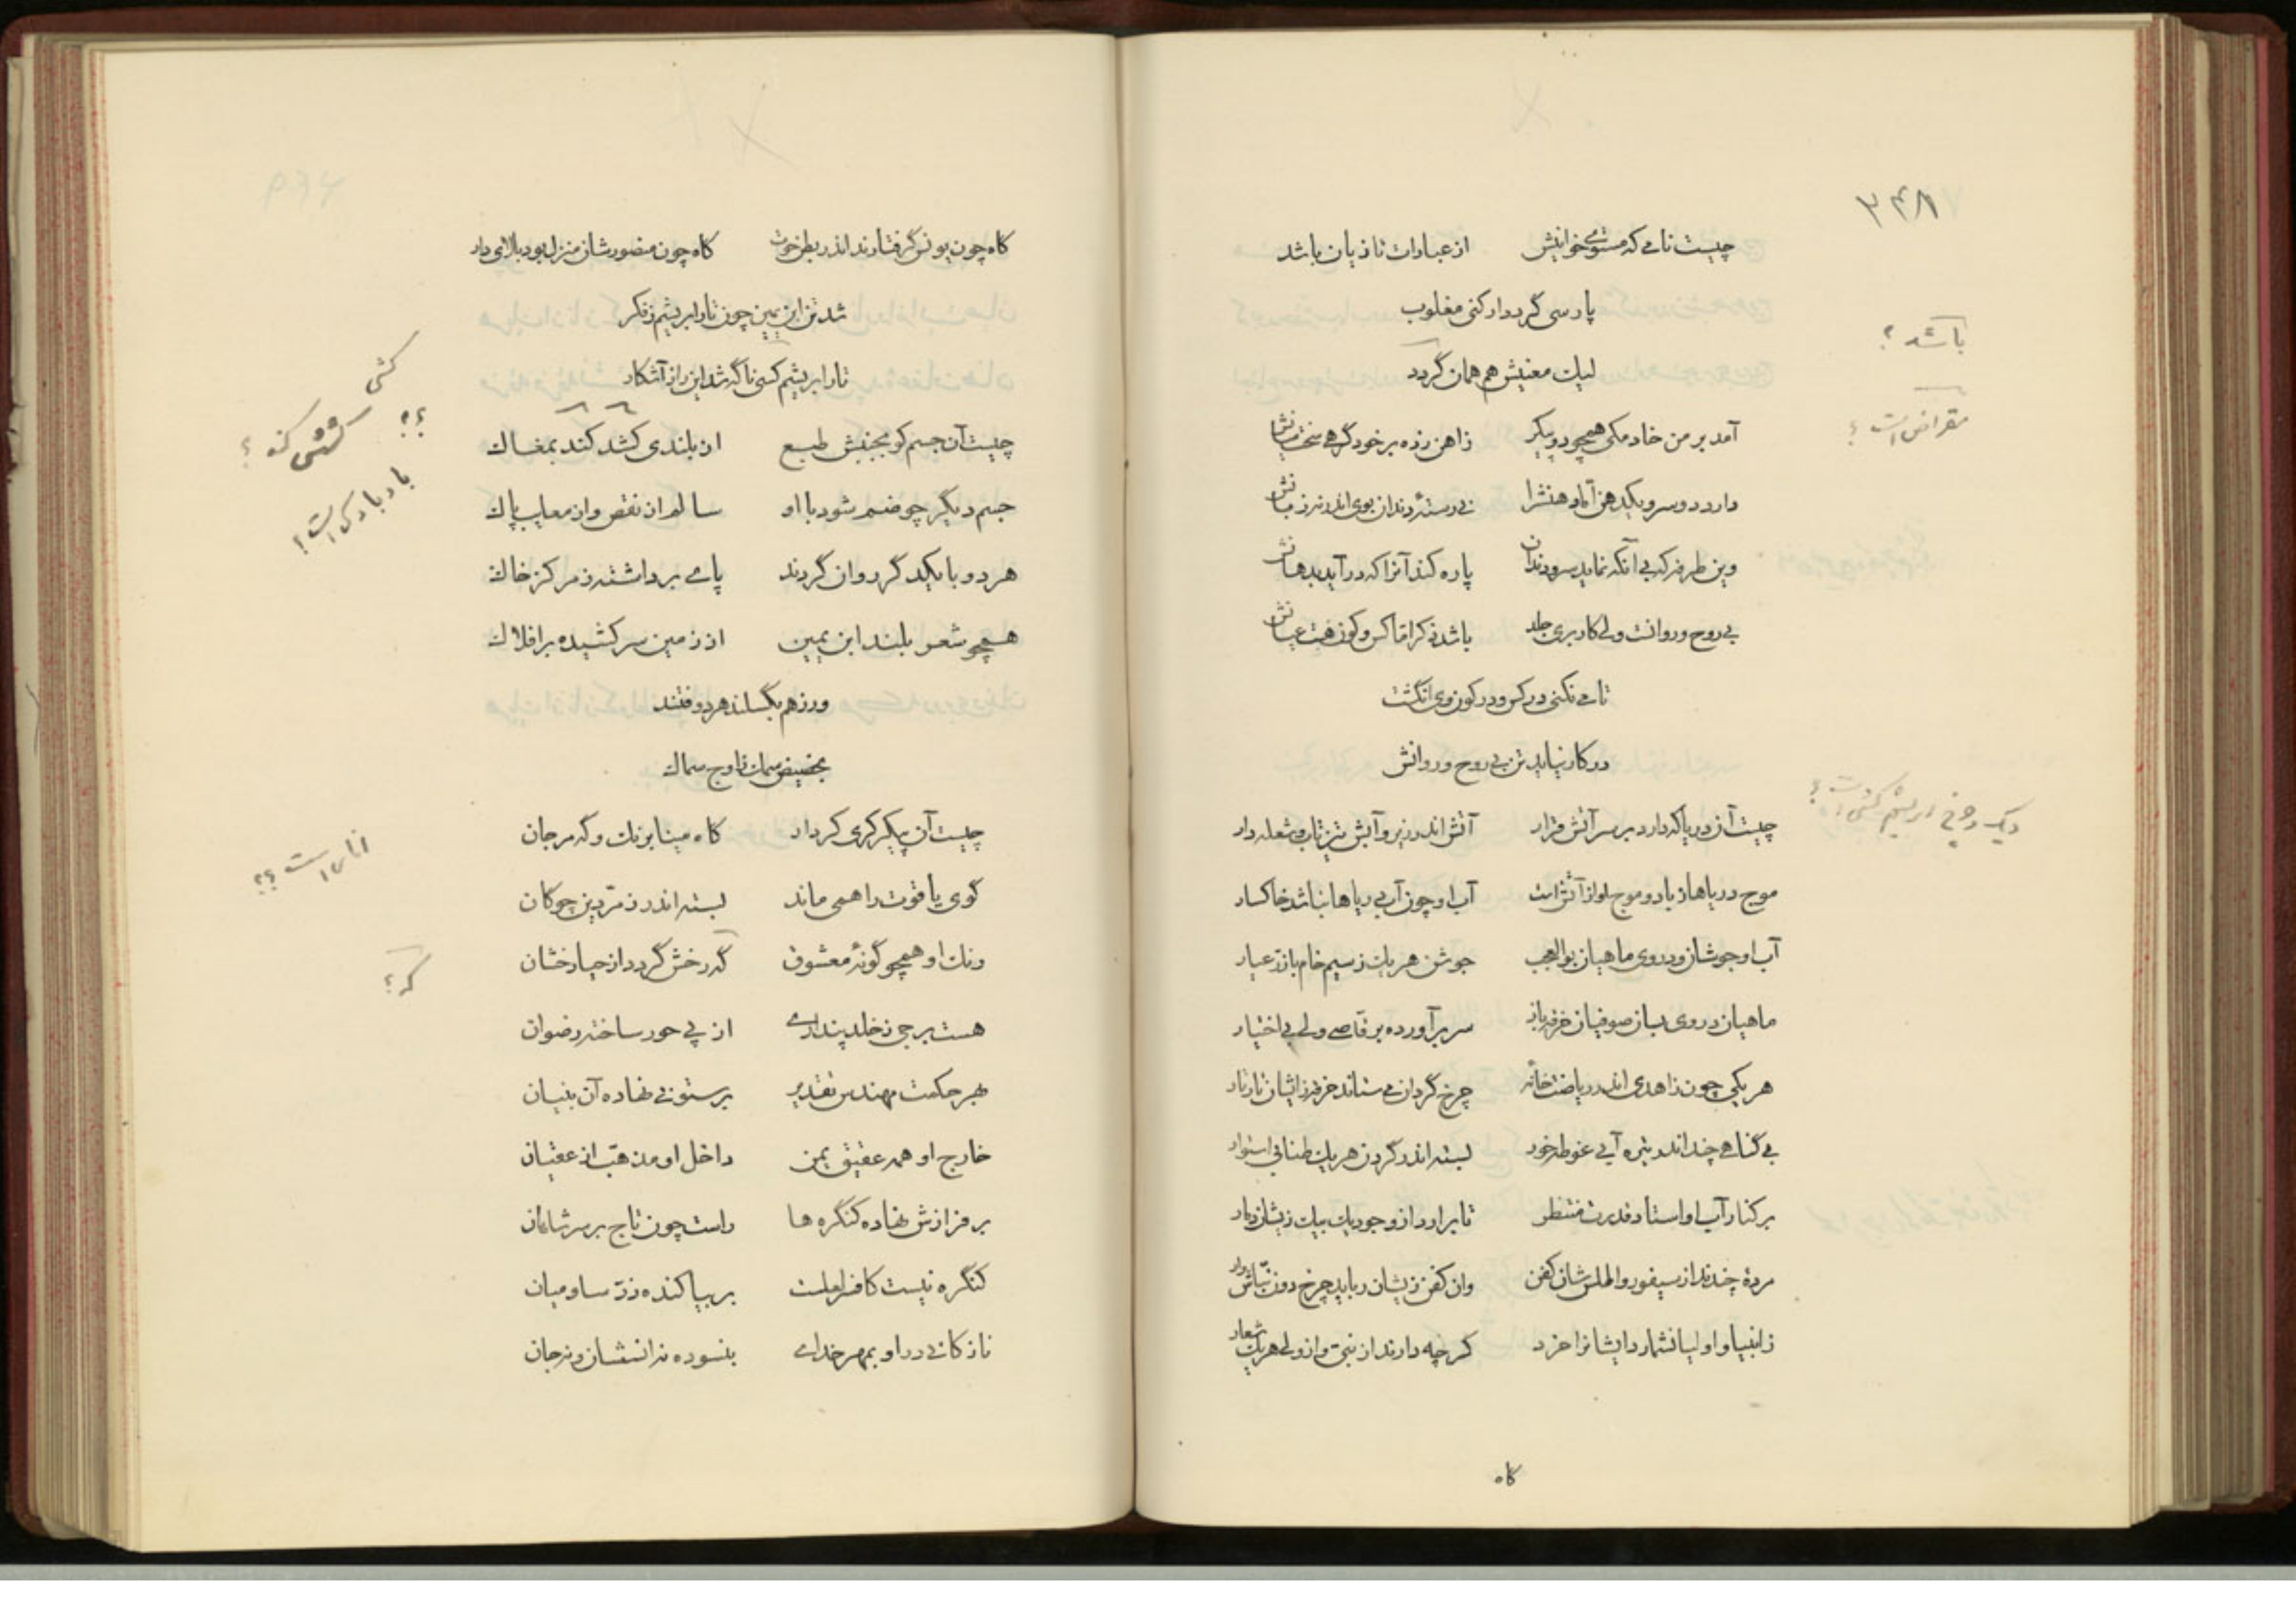 ۳۴۸
چیست نامی که مستوی خوانیش از عبارات تازیان باشد
پارسی گردد ار کنی مغلوب
باشد؟
لیك معنیش هم همان گردد
آمد بر من خادمکی همچو دو پیکر زاهن زده بر خود گرهی سخت میانش
مقراض است؟
دارد دو سر و یکدهن آماده هنش را نی رسته دندان بوی اندر نه زبانش
وین طرفه که بی آنکه نماید سر دندان پاره کند آنرا که در آید بدهانش
بی روح و روانست ولی کار بری جلد باشد
تا می نکنی در کس و در کون وی انگشت
در کار نیاید تن بی روح و روانش
چیست آن دریا که دارد بر سر آتش قرار آتش اندر زیر و آبش تیز تاب و شعله دار
دیگ و چرخ ابریشم کشی است؟
موج دریاها ز باد و موج او از آتش است آب او چون آب دریاها نباشد خاکسار
آب او جوشان و در وی ماهیان بوالعجب جوشن هر یك ز سیم خام یا زر عیار
ماهیان در وی بسان صوفیان خرقه باز سر بر آورده برقاصی ولی بی اختیار
هر یکی چون زاهدی اندر ریاضت خانه چرخ گردان می ستاند خرقه زایشان تار تار
بی گناهی چند اندر تیره آبی غوطه خور بسته اندر گردن هر یك طنابی استوار
بر کنار آب او استاد قدرت منتظر تا برارد از وجود یك بیك زیشان دمار
مرده چندند از سیفور و اطلس شان کفن وان کفن زیشان رباید چرخ دون نباش وار
زانبیا و اولیا نشمارد ایشانرا خرد گرچه دارند از نبی و از ولی هر یك شعار
گاه
گاه چون یونس گرفتارند اندر بطن حوت گاه چون منصور شان منزل بود بالای دار
شد تن ابن یمین چون تار ابریشم ز فکر
تار ابریشم کسی ناگه شد این راز آشکار
کشی
چیست آن جسم کو بجنبش طبع از بلندی کشد کند بمغاك
کشش کند؟
؟؟
جسم دیگر چو ضم شود با او سالم از نقص و از معایب پاك
بادبادك است؟
هر دو با یکدگر روان گردند پای برداشته ز مرکز خاك
همچو شعر بلند ابن یمین از زمین سر کشیده بر افلاك
ور ز هم بگسلند هر دو فتند
بحضیض سمك ز اوج سماك
چیست آن پیکر کری کردار گاه مینا برنك و گه مرجان
انار است؟؟
گوی یاقوت را همی ماند بسته اندر زمردین چوگان
رنك او همچو گونه معشوق گه رخش گردد از حیا رخشان
که؟
هست برجی ز خلد پنداری از پی حور ساخته رضوان
بهر حکمت مهندس تقدیر بر ستونی نهاده آن بنیان
خارج او همه عقیق یمن داخل او مذهب از عقیان
بر فرازش نهاده کنگره ها راست چون تاج بر سر شاهان
کنگره نیست کافر املست بر بپاکنده زر ساو میان
نازکانی در او بمهر خدای بنسوده نه انسشان و نه جان